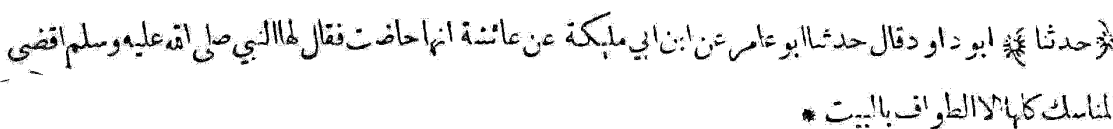 ﴿ حدثنا ﴾ ابو داود قال حدثنا ابو عامر عن ابن ابي مليكة عن عائشة انها حاضت فقال لها النبي صلى الله عليه وسلم اقضي
لمناسك كلها الا الطواف بالبيت *